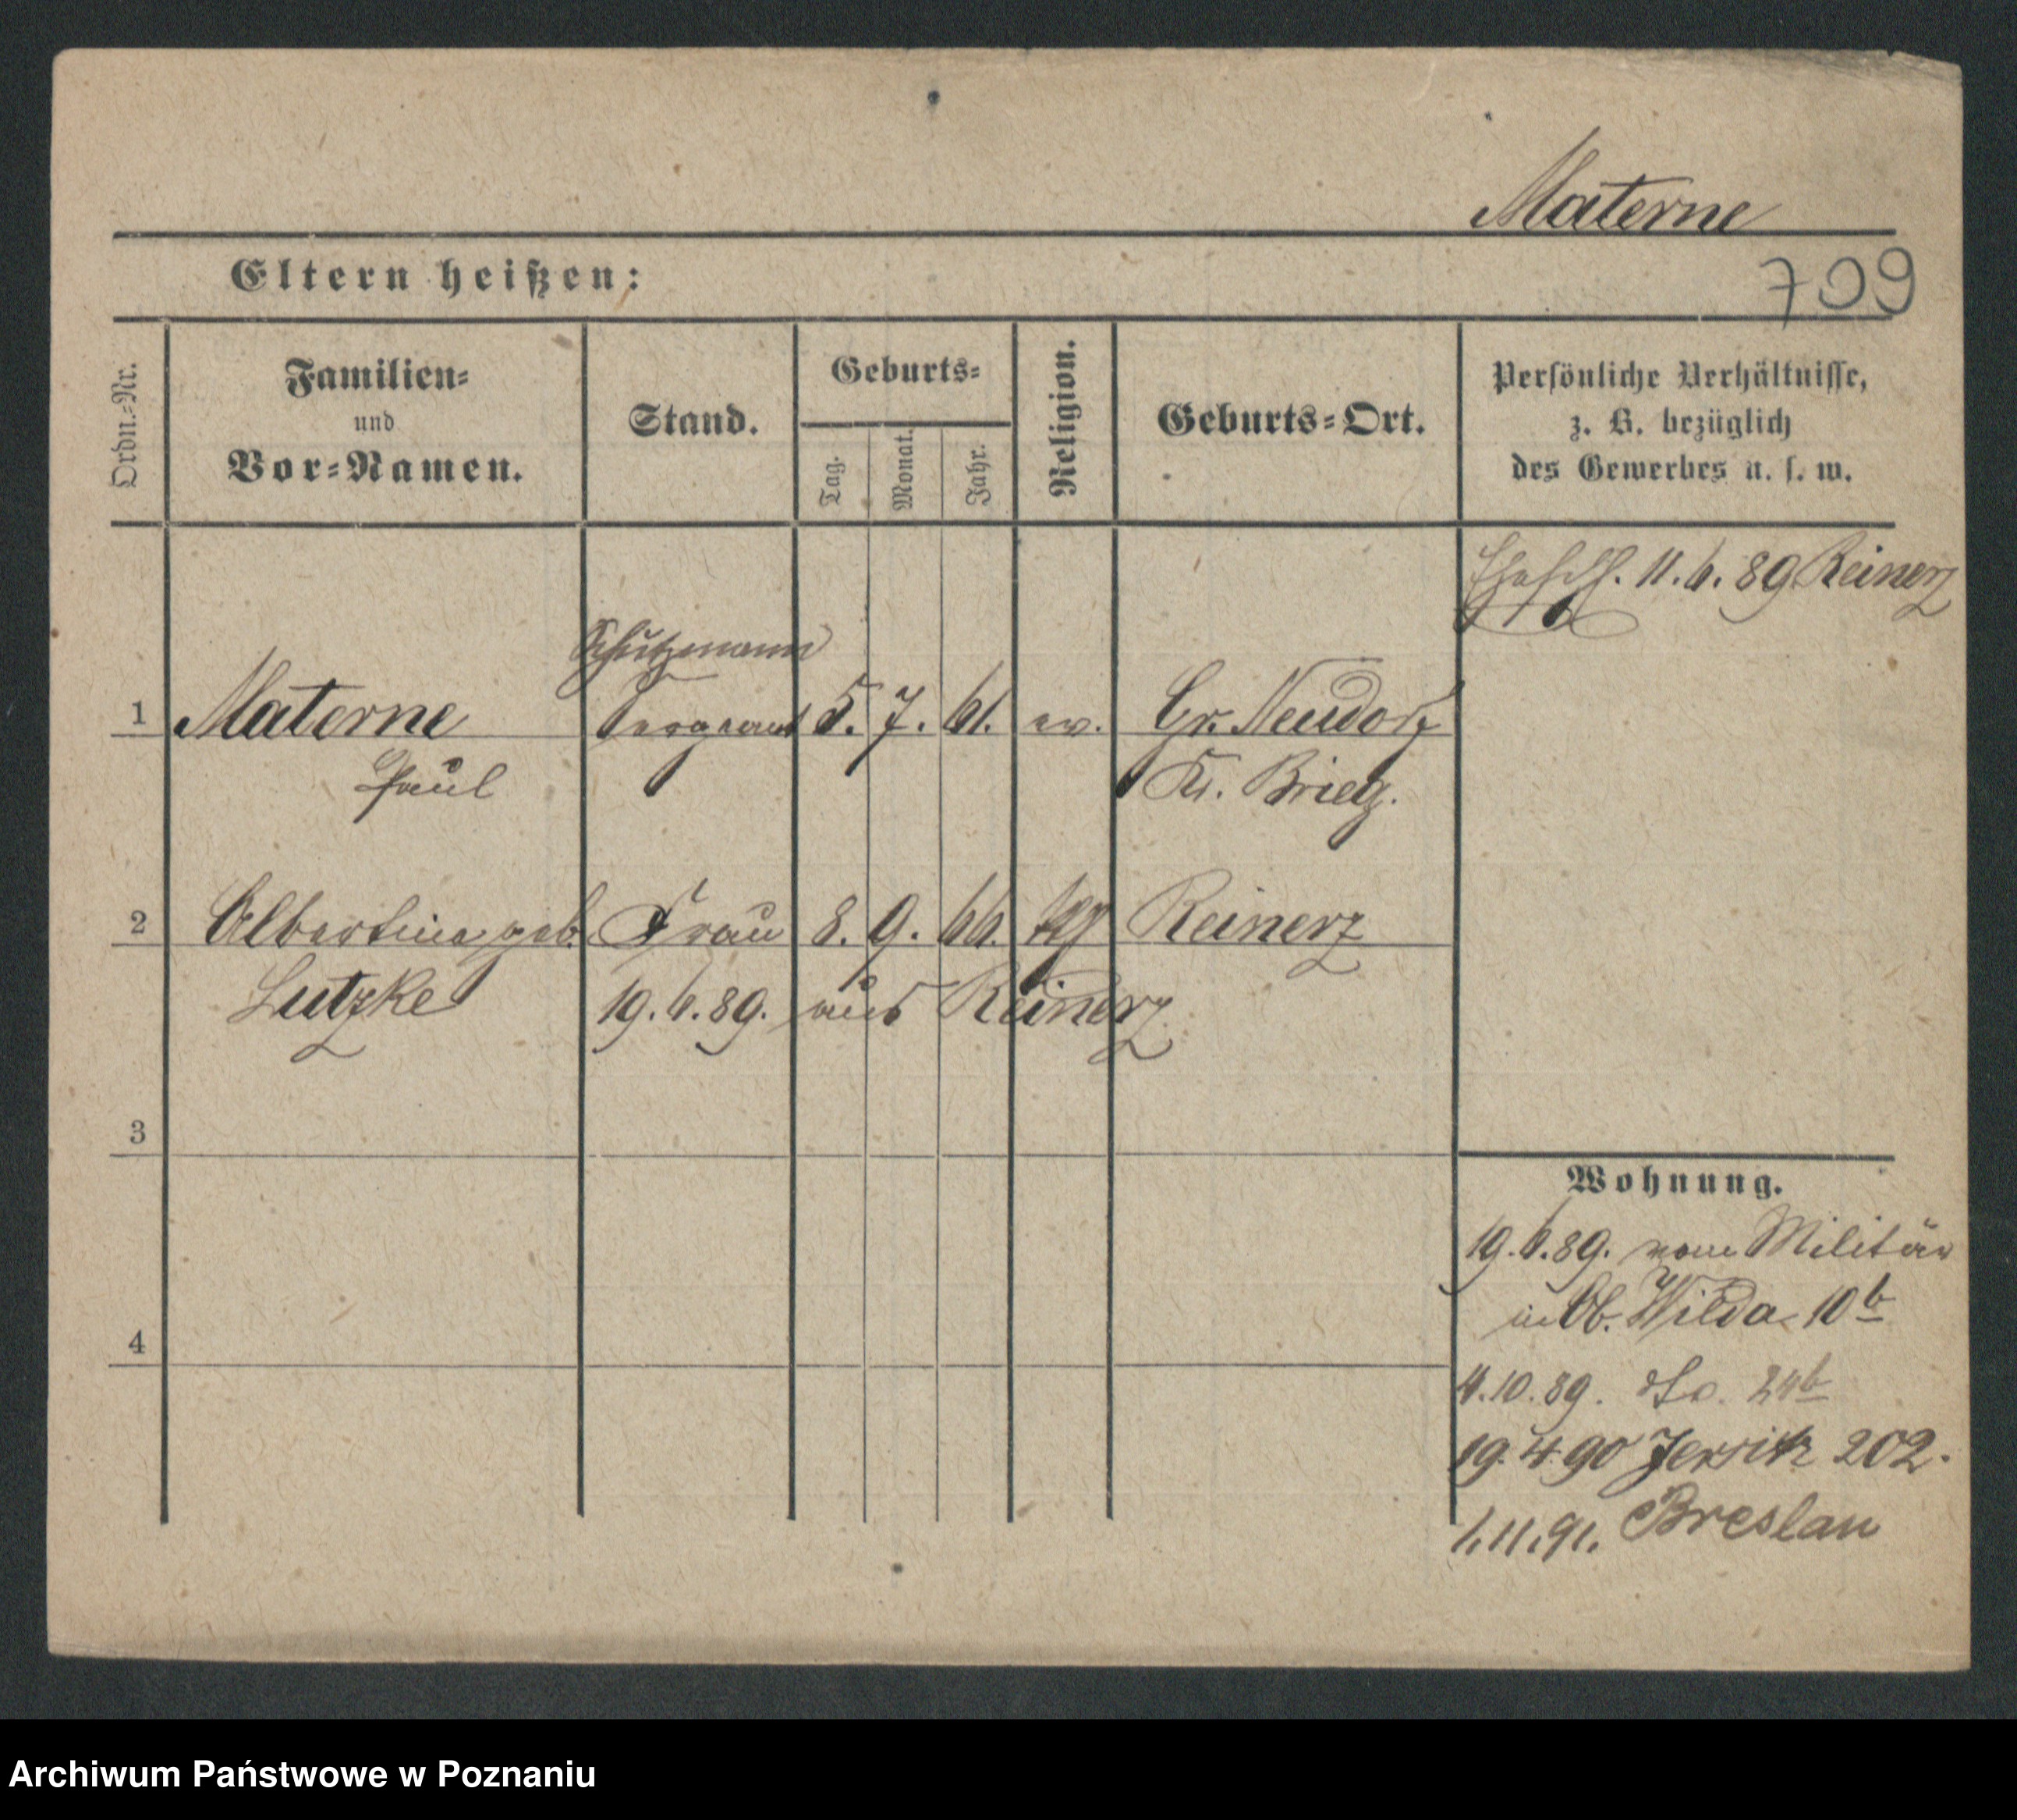 Materne
709
Eltern heißen:
Ordn.-Nr.
Familien-
und
Vor-Namen.
Stand.
Geburts-
Tag.
Monat.
Jahr.
Religion.
Geburts-Ort.
Persönliche Verhältnisse,
z. B. bezüglich
des Gewerbes u. s. w.
Eheschl. 11.6.89 Reinerz
Schutzmann
1 Materne Sergeant 5. 7. 61. ev. Gr. Neudorf
Paul Kr. Brieg.
2 Albertine geb. Frau 8. 9. 66. Reinerz
Lutzke 19.6.89. aus Reinerz
3
4
Wohnung.
19.6.89. vom Militär
in Ob. Wilda 10b
4.10.89. do. 24b
19.4.90 Jersitz 202.
1.11.91. Breslau
Archiwum Państwowe w Poznaniu